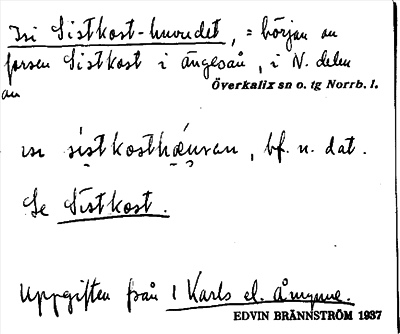 Isi Sistkost-huvudet, = början av
forsen Sistkost i ängesån, i N. delen
av
Överkalix sn o. tg Norrb. l.
ısı sistkosthǽuvan, bf. n. dat.
Se Sistkost.
Uppgiften från 1 Karls el. Åmynne.
EDVIN BRÄNNSTRÖM 1937